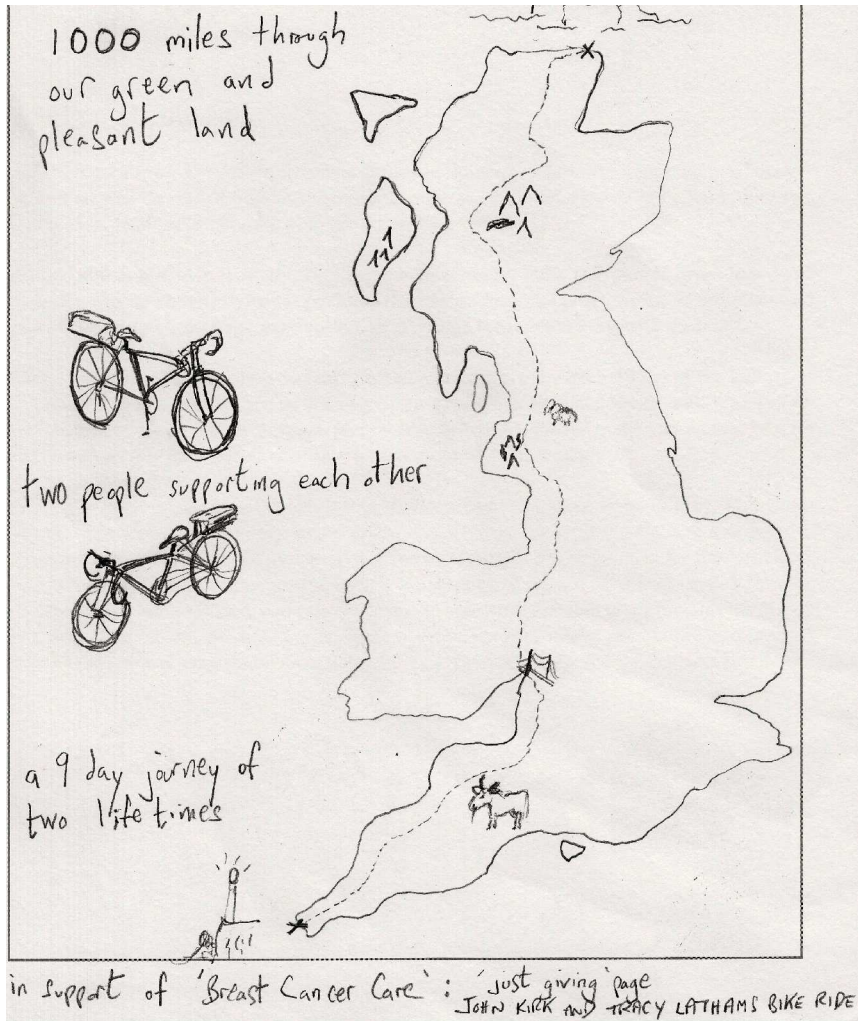 1000 miles through
our green and
pleasant land
two people supporting each other
a 9 day journey of
two life times
in support of 'Breast Cancer Care' : 'just giving' page
JOHN KIRK AND TRACY LATHAMS BIKE RIDE